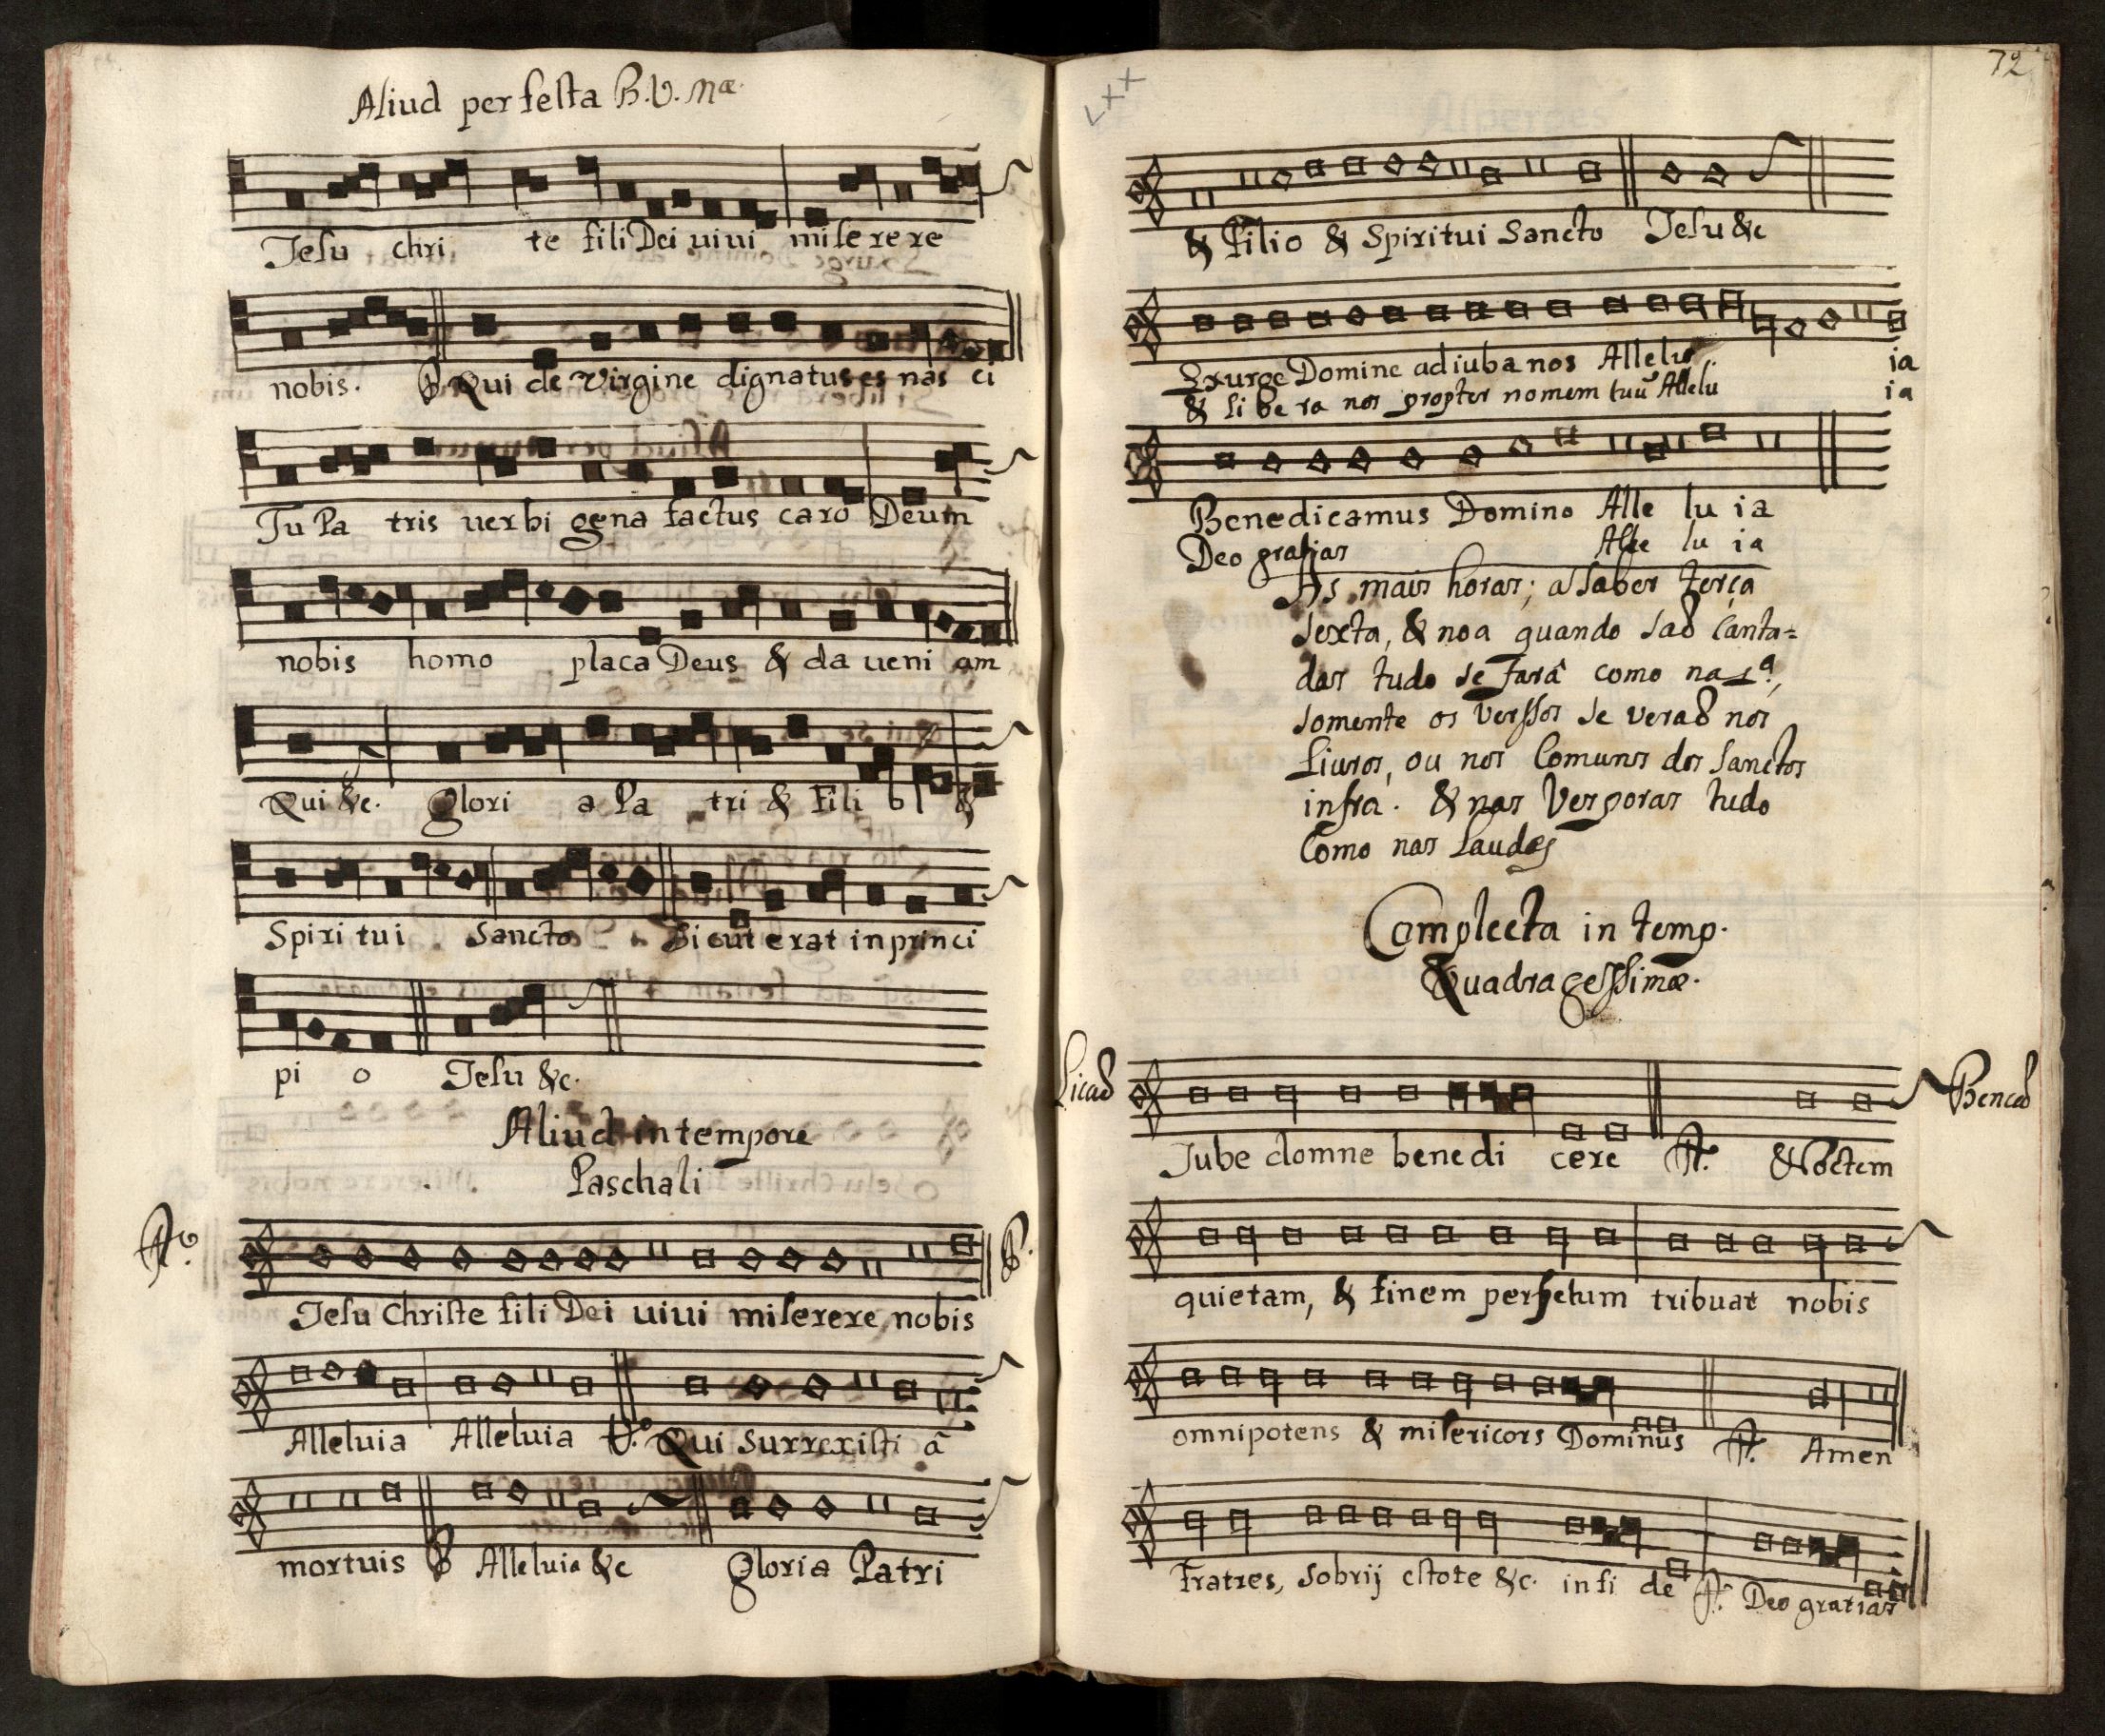 Aliud per festa B.V. Mæ.
Jesu chri te fili Dei uiui miserere
nobis. ℟ Qui de Virgine dignatus es nas ci
Tu Pa tris uerbi gena factus caro Deum
nobis homo placa Deus & da ueni am
Qui &c. Glori a Pa tri & Fili o &
Spiri tui Sancto Sicut erat in princi
pi o Jesu &c.
Aliud in tempore
Paschali
Jesu Christe fili Dei uiui miserere nobis
Alleluia Alleluia ℣.º Qui Surrexisti â
mortuis ℟ Alleluia &c Gloria Patri
LXX
72
& Filio & Spiritui Sancto Jesu &c
Exurge Domine adiuba nos Allelu ia
& libe ra nos propter nomem tuũ Allelu ia
Benedicamus Domino Alle lu ia
Deo gratias Alle lu ia
As mais horas; a saber terça
sexta, & noa quando saõ Canta=
das tudo se farâ como na 1ª,
somente os verssos se veraõ nos
Liuros, ou nos Comuns dos Sanctos
infra. & nas Vesporas tudo
Como nas Laudes
Complecta in temp.
Quadragessimæ.
Licaõ
Jube domne benedi cere ℟. & Noctem
Bencaõ
quietam, & finem perfetum tribuat nobis
omnipotens & misericors Dominus ℟. Amen
Fratres, Sobrij estote &c. in fi de ℟. Deo gratias